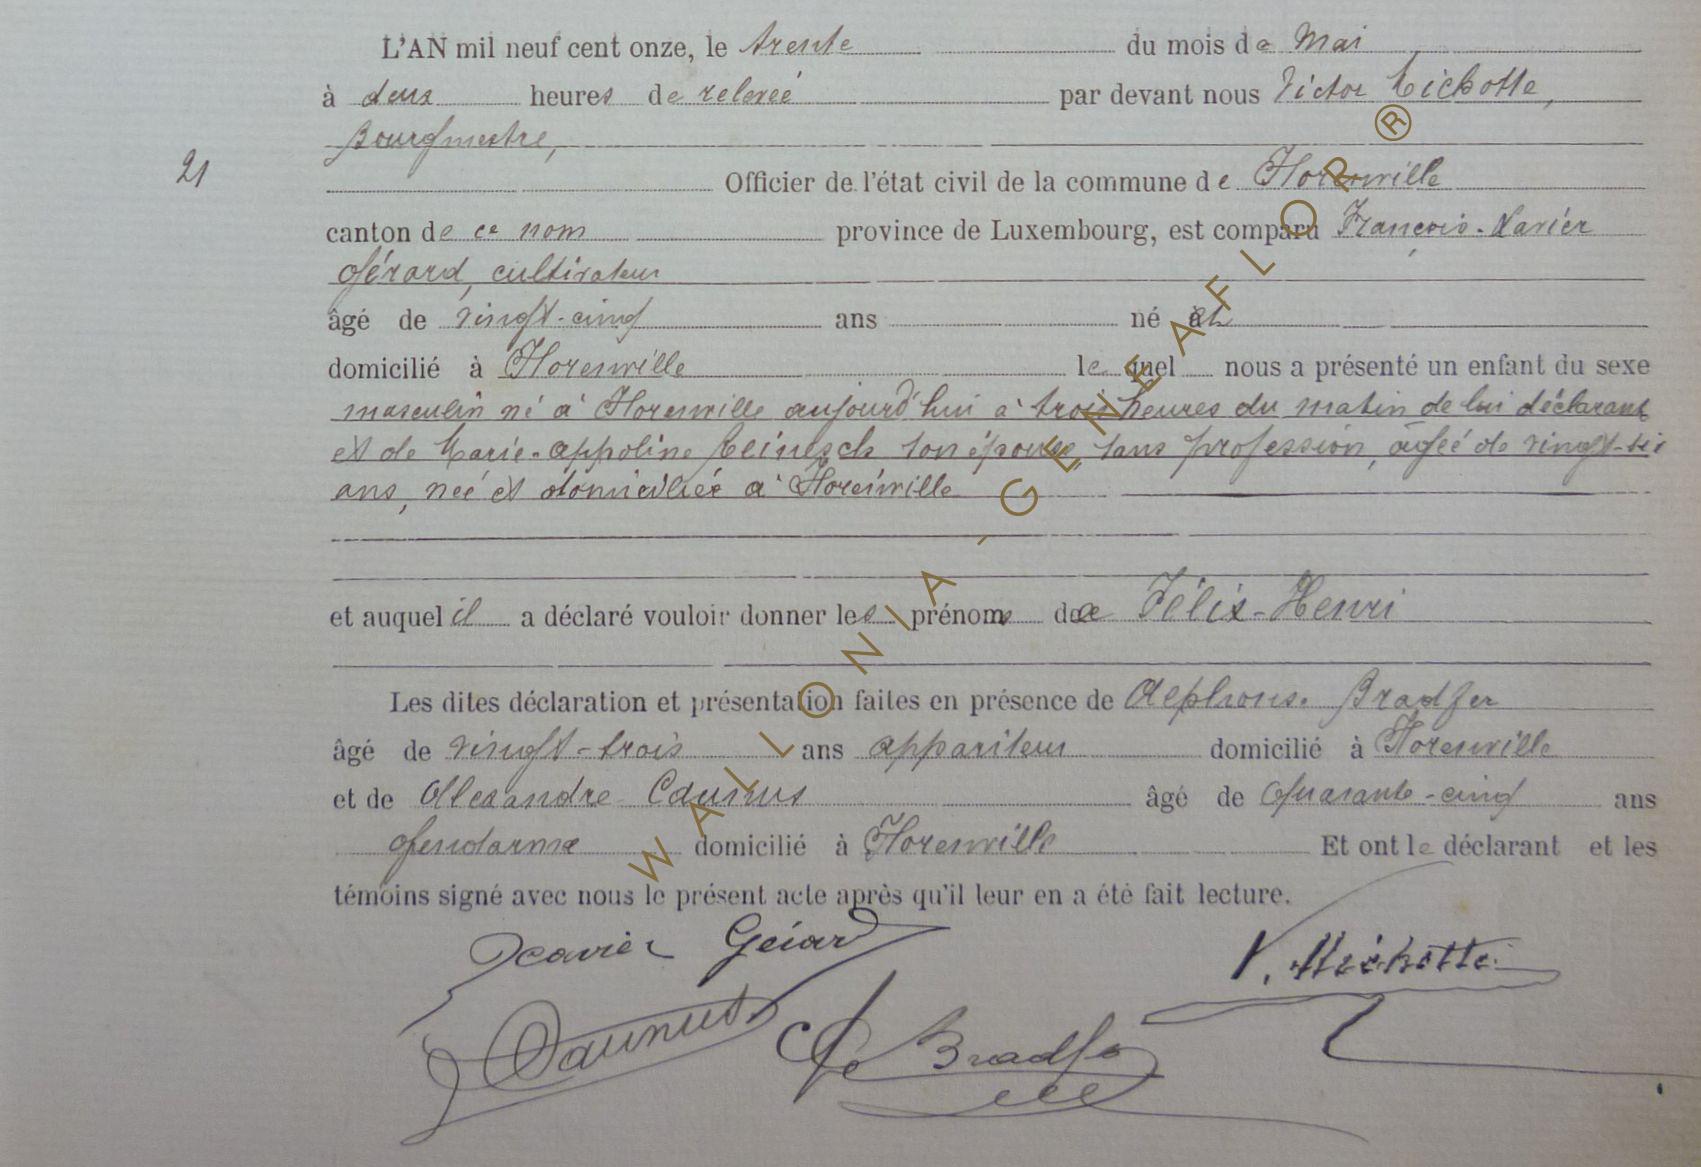 L'AN mil neuf cent onze, le trente du mois de Mai
à deux heures de relevée par devant nous Victor Michotte,
Bourgmestre,
21
Officier de l'état civil de la commune de Florenville
canton de ce nom province de Luxembourg, est comparu François-Xavier
Gérard, cultivateur
âgé de vingt-cinq ans né et
domicilié à Florenville lequel nous a présenté un enfant du sexe
masculin né à Florenville aujourd'hui à trois heures du matin de lui déclarant
et de Marie-Appoline son épouse, sans profession, âgée de vingt-six
ans, née et domiciliée à Florenville
et auquel il a déclaré vouloir donner les prénoms de Félix-Henri
Les dites déclaration et présentation faites en présence de Alphonse Bradfer
âgé de vingt-trois ans appariteur domicilié à Florenville
et de Alexandre Caunus âgé de quarante-cinq ans
gendarme domicilié à Florenville Et ont le déclarant et les
témoins signé avec nous le présent acte après qu'il leur en a été fait lecture.
Xavier Gérard
V. Michotte
Caunus
Bradfer
WALLONIA - GENEAFLOR ®